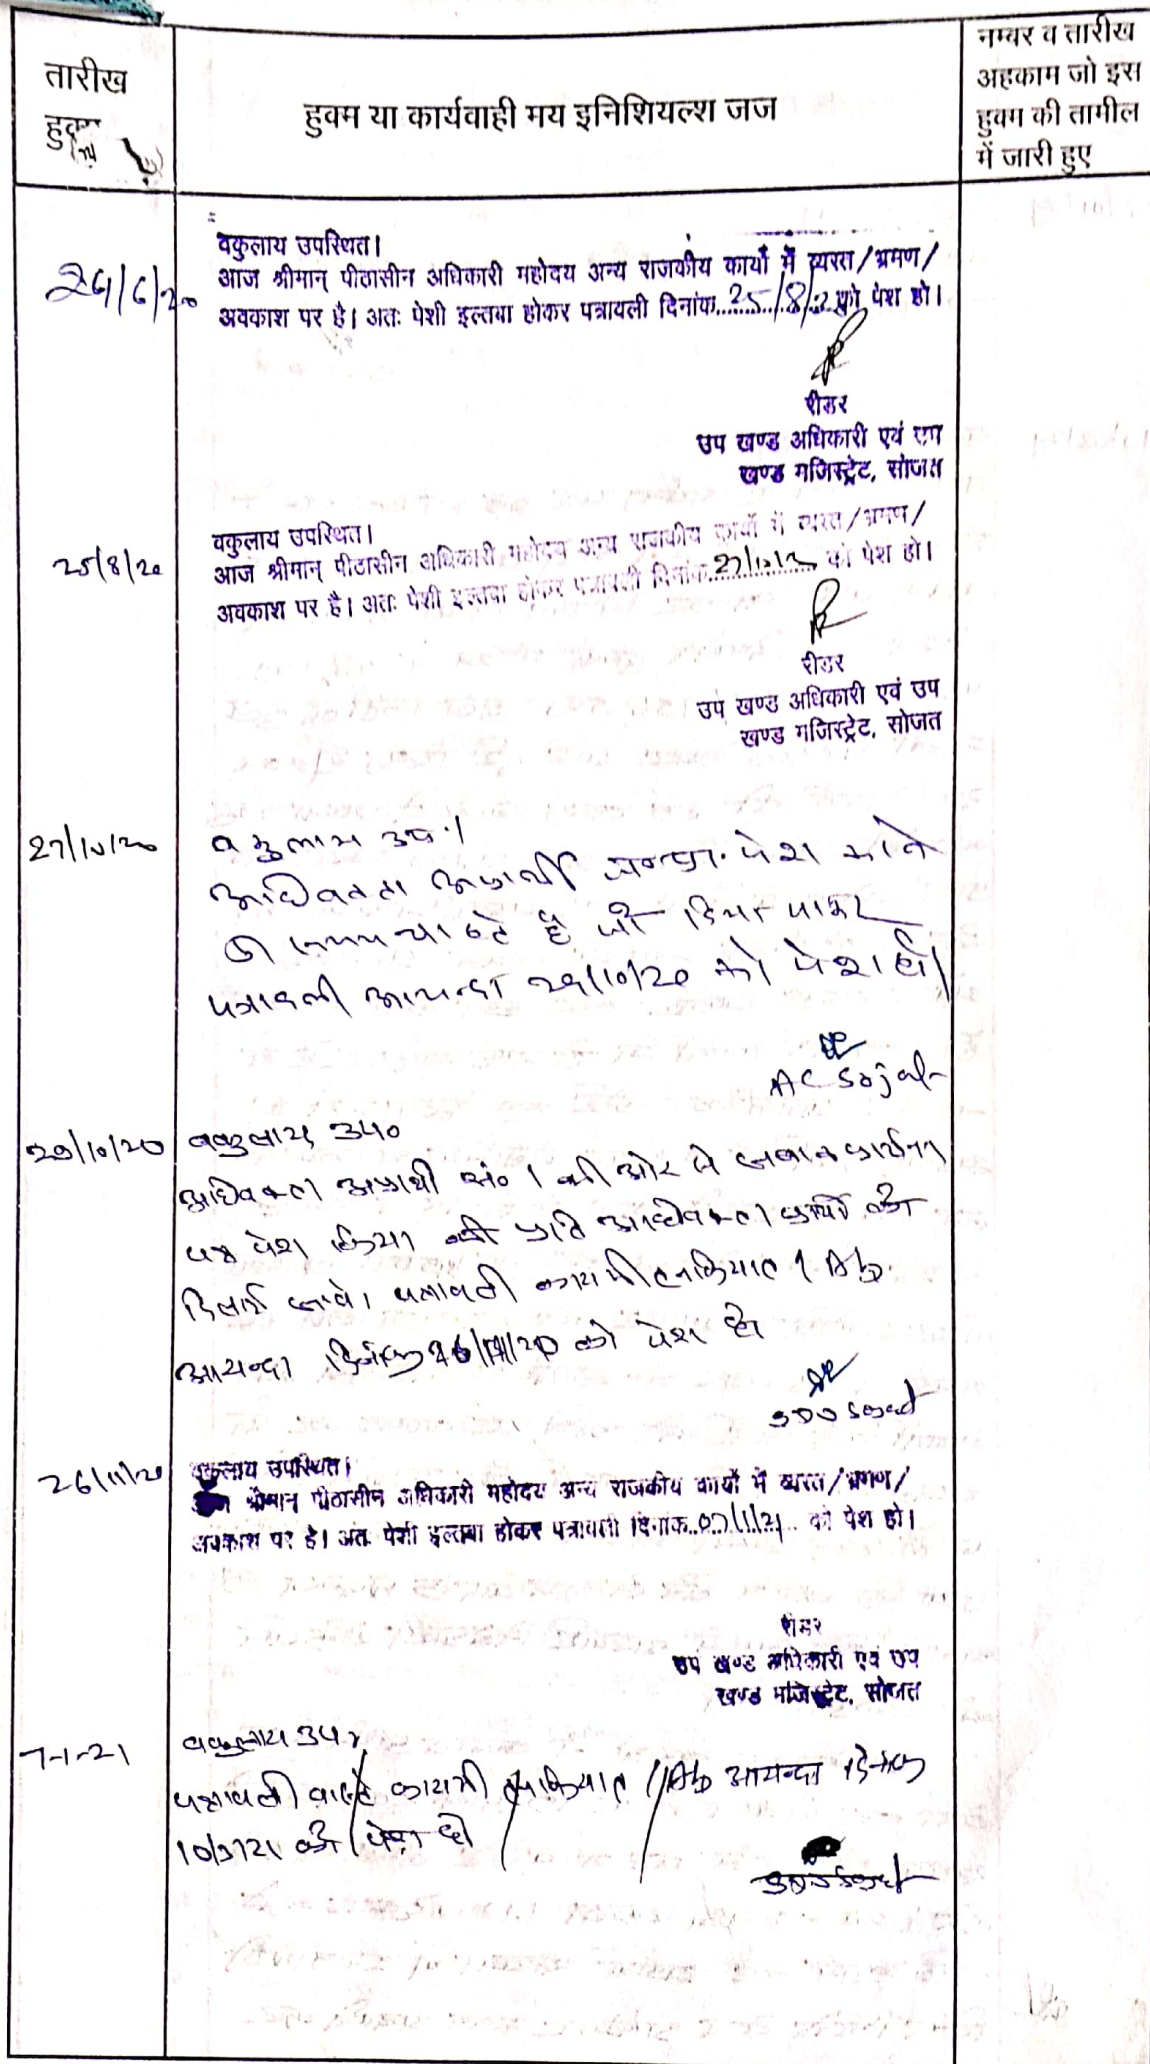 तारीख
हुक्म
हुक्म या कार्यवाही मय इनिशियल्श जज
नम्बर व तारीख
अहकाम जो इस
हुक्म की तामील
में जारी हुए
वकुलाय उपस्थित।
आज श्रीमान् पीठासीन अधिकारी महोदय अन्य राजकीय कार्यों में व्यस्त/भ्रमण/
अवकाश पर है। अतः पेशी इल्तवा होकर पत्रावली दिनांक 25/8/2 को पेश हो।
रीडर
उप खण्ड अधिकारी एवं उप
खण्ड मजिस्ट्रेट, सोजत
25/8/20
वकुलाय उपस्थित।
आज श्रीमान् पीठासीन अधिकारी महोदय अन्य राजकीय कार्यों में व्यस्त/भ्रमण/
अवकाश पर है। अतः पेशी इल्तवा होकर पत्रावली दिनांक को पेश हो।
रीडर
उप खण्ड अधिकारी एवं उप
खण्ड मजिस्ट्रेट, सोजत
27/10/20
वकुलाय उप.।
अधिवक्ता अप्रार्थी पेश करने
समय चाहते है जो दिया जाकर
पत्रावली आयन्दा 29/10/20 को पेश हो।
AC Sojat
29/10/20
वकुलाय उप०
अधिवक्ता अप्रार्थी सं० 1 की ओर से जवाब प्रार्थना
पत्र पेश किया की प्रति अधिवक्ता प्रार्थी को
दिलाई जावे। पत्रावली कायमी तनकियात
आयन्दा दिनांक 26/11/20 को पेश हो
SDO Sojat
26/11/20
वकुलाय उपस्थित।
आज श्रीमान् पीठासीन अधिकारी महोदय अन्य राजकीय कार्यों में व्यस्त/भ्रमण/
अवकाश पर है। अतः पेशी इल्तवा होकर पत्रावली दिनांक 07/1/21 को पेश हो।
रीडर
उप खण्ड अधिकारी एवं उप
खण्ड मजिस्ट्रेट, सोजत
7-1-21
वकुलाय उप
पत्रावली वास्ते कायमी तनकियात आयन्दा दिनांक
10/3/21 को पेश हो